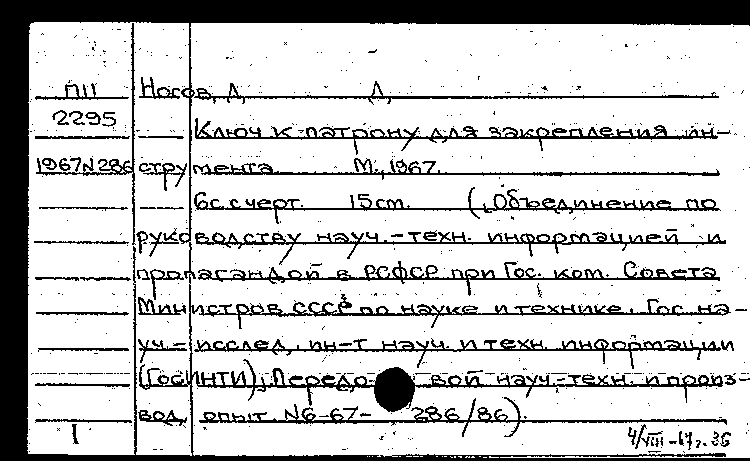 П11 Носов, Д, Д,
2295
Ключ к патрону для закрепления ин-
1967N286 струмента М., 1967.
6с.счерт. 15см. (Объединение по
руководству науч.-техн. информацией и
пропагандой в РСФСР при Гос. ком. Совета
Министров СССР по науке и технике. Гос. на-
уч.-исслед. ин-т науч. и техн. информации
(ГОСИНТИ). Передовой науч.-техн. и произ-
вод. опыт. N6-67-286/86).
1